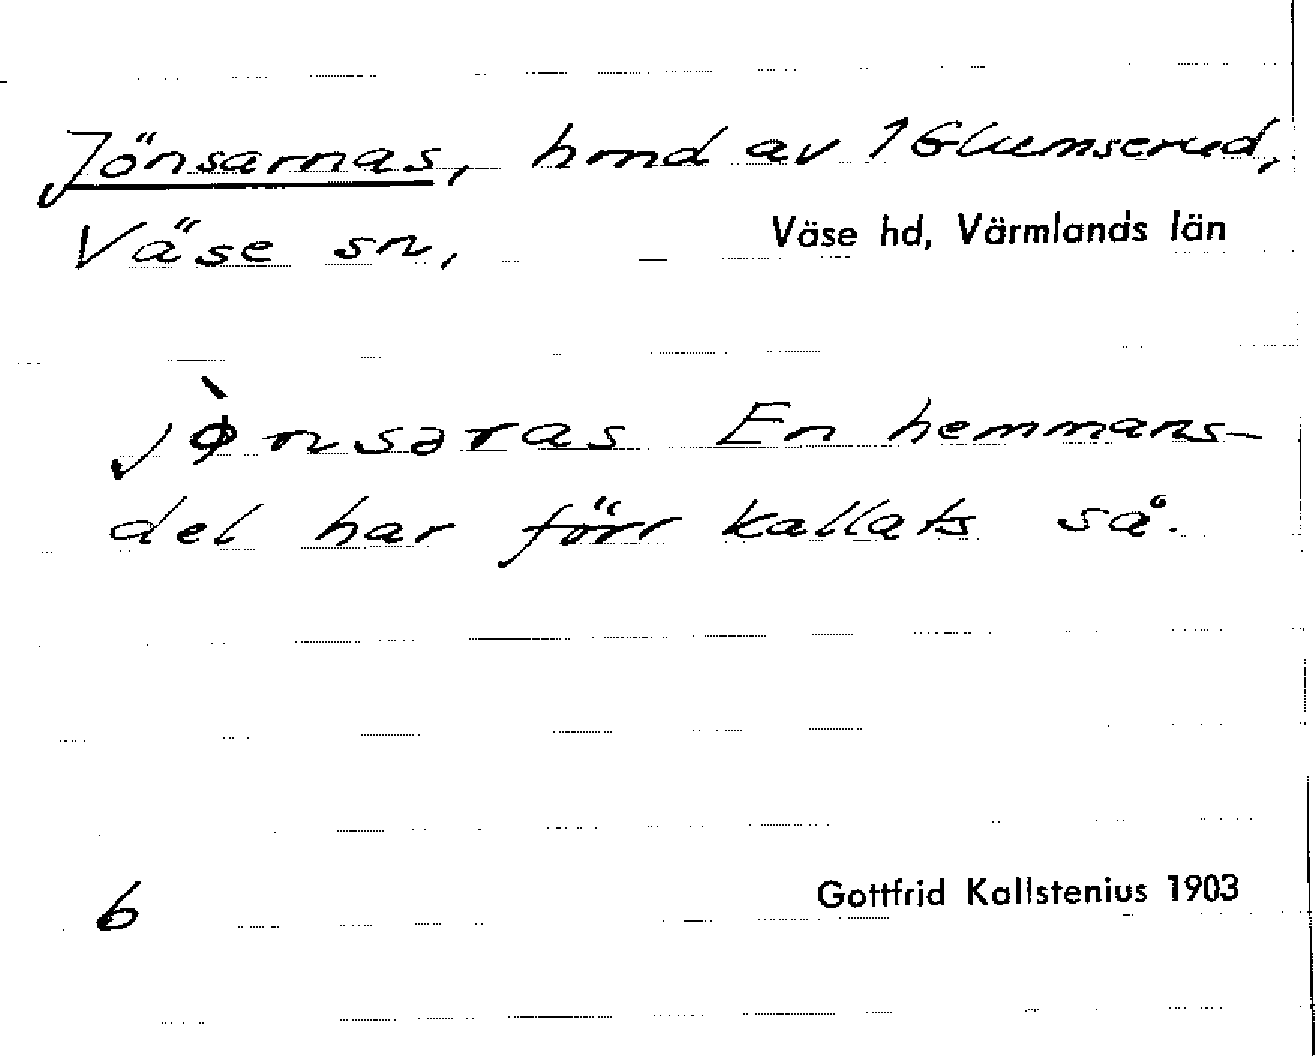 Jönsarnas, hmd av 1 Glumserud,
Väse sn, Väse hd, Värmlands län
jø̀nsaras En hemmans-
del har förr kallats så.
6 Gottfrid Kallstenius 1903